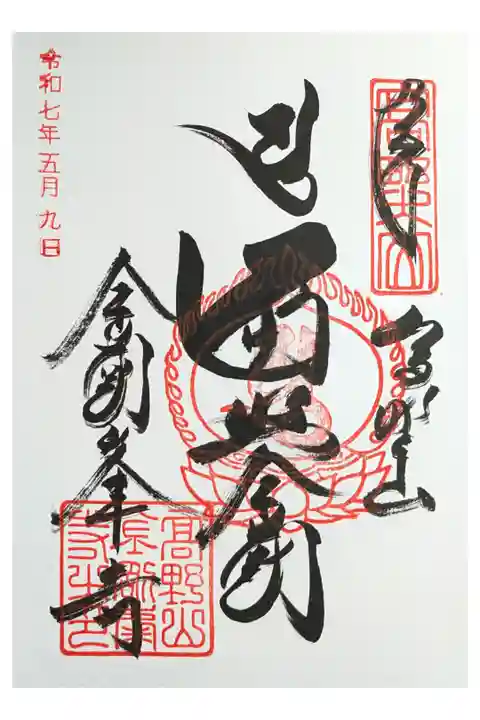 奉拝
高野山
遍照金剛
金剛峯寺
令和七年五月九日
高野山
金剛峯
寺之印